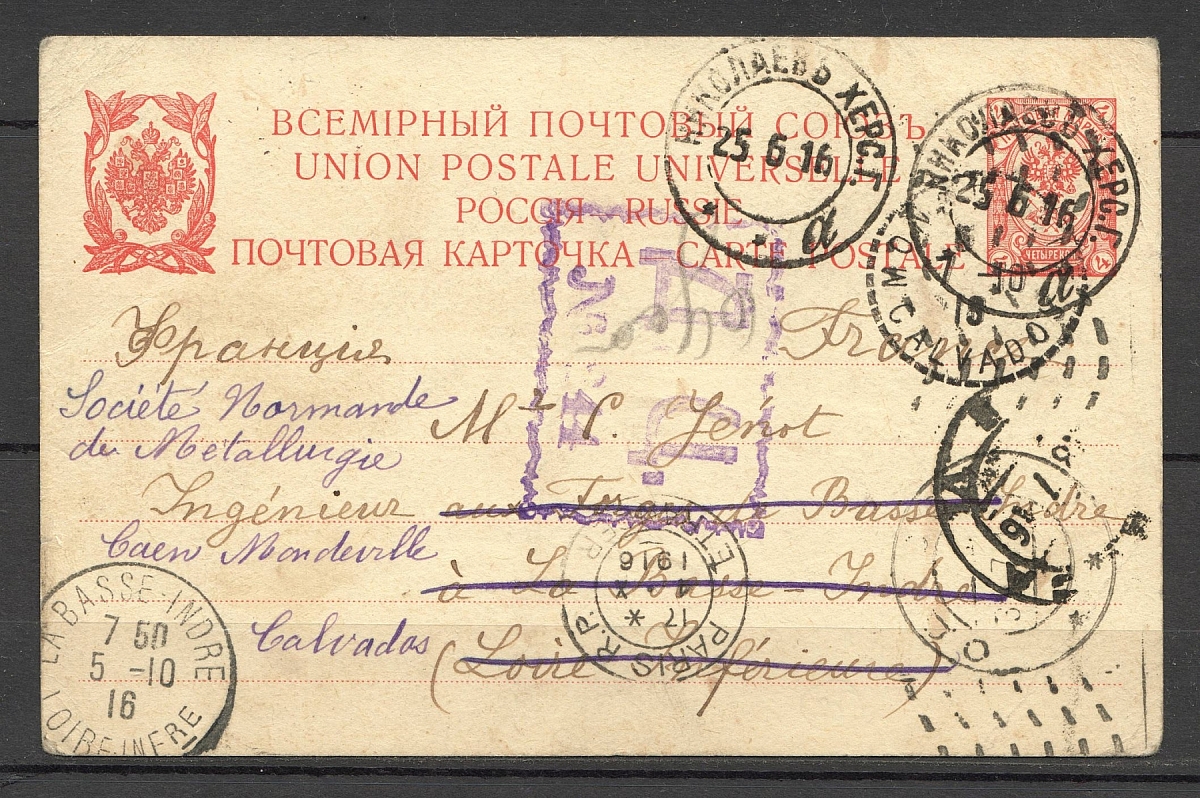 ВСЕМІРНЫЙ ПОЧТОВЫЙ СОЮЗЪ
UNION POSTALE UNIVERSELLE
РОССІЯ – RUSSIE
ПОЧТОВАЯ КАРТОЧКА – CARTE POSTALE
НИКОЛАЕВЪ ХЕРС.Г.
25 6 16
а
НИКОЛАЕВЪ ХЕРС.Г.
25 6 16
а
4
ЧЕТЫРЕ
4
7 10
CALVADO
Франція
France
Société Normande
de Métallurgie
Mr C. Jénot
Ingénieur aux Forges de Basse-Indre
Caen Mondeville
à La Basse-Indre
Calvados
(Loire Inférieure)
LA BASSE-INDRE
7 50
5 -10
16
LOIRE-INFRE
PARIS R.P.
17
4 X
1916
ETRANGER